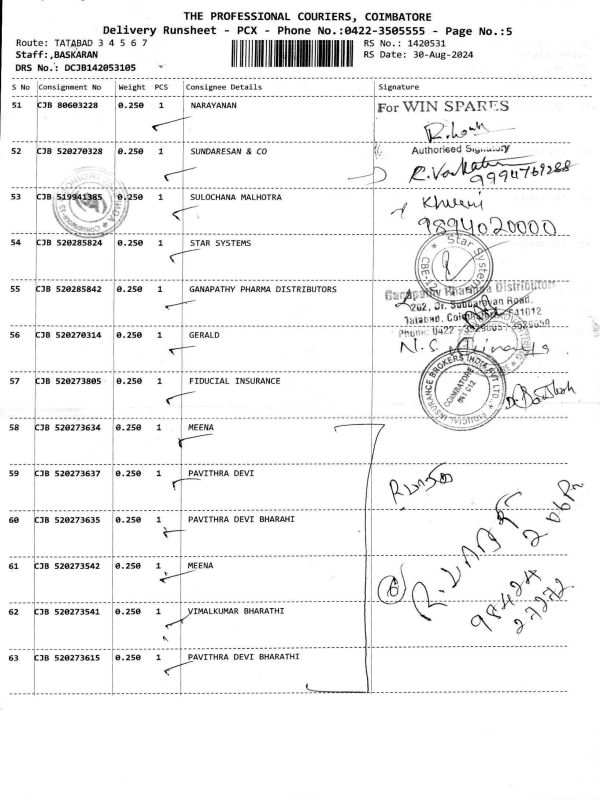 THE PROFESSIONAL COURIERS, COIMBATORE
Delivery Runsheet - PCX - Phone No.:0422-3505555 - Page No.:5
Route: TATABAD 3 4 5 6 7
RS No.: 1420531
Staff:,BASKARAN
RS Date: 30-Aug-2024
DRS No.: DCJB142053105
S No Consignment No Weight PCS Consignee Details Signature
51 CJB 80603228 0.250 1 NARAYANAN
For WIN SPARES
Authorised Signatory
52 CJB 520270328 0.250 1 SUNDARESAN & CO
9994769288
53 CJB 519941385 0.250 1 SULOCHANA MALHOTRA
9894020000
54 CJB 520285824 0.250 1 STAR SYSTEMS
Star Systems
CBE-12
55 CJB 520285842 0.250 1 GANAPATHY PHARMA DISTRIBUTORS
Ganapathy Pharma Distributors
202, Dr. Subbarayan Road,
Tatabad, Coimbatore-641012
Phone: 0422
56 CJB 520270314 0.250 1 GERALD
57 CJB 520273805 0.250 1 FIDUCIAL INSURANCE
FIDUCIAL INSURANCE BROKERS INDIA PVT LTD.,
COIMBATORE
641 012
58 CJB 520273634 0.250 1 MEENA
59 CJB 520273637 0.250 1 PAVITHRA DEVI
60 CJB 520273635 0.250 1 PAVITHRA DEVI BHARAHI
61 CJB 520273542 0.250 1 MEENA
6
98424
27272
62 CJB 520273541 0.250 1 VIMALKUMAR BHARATHI
63 CJB 520273615 0.250 1 PAVITHRA DEVI BHARATHI